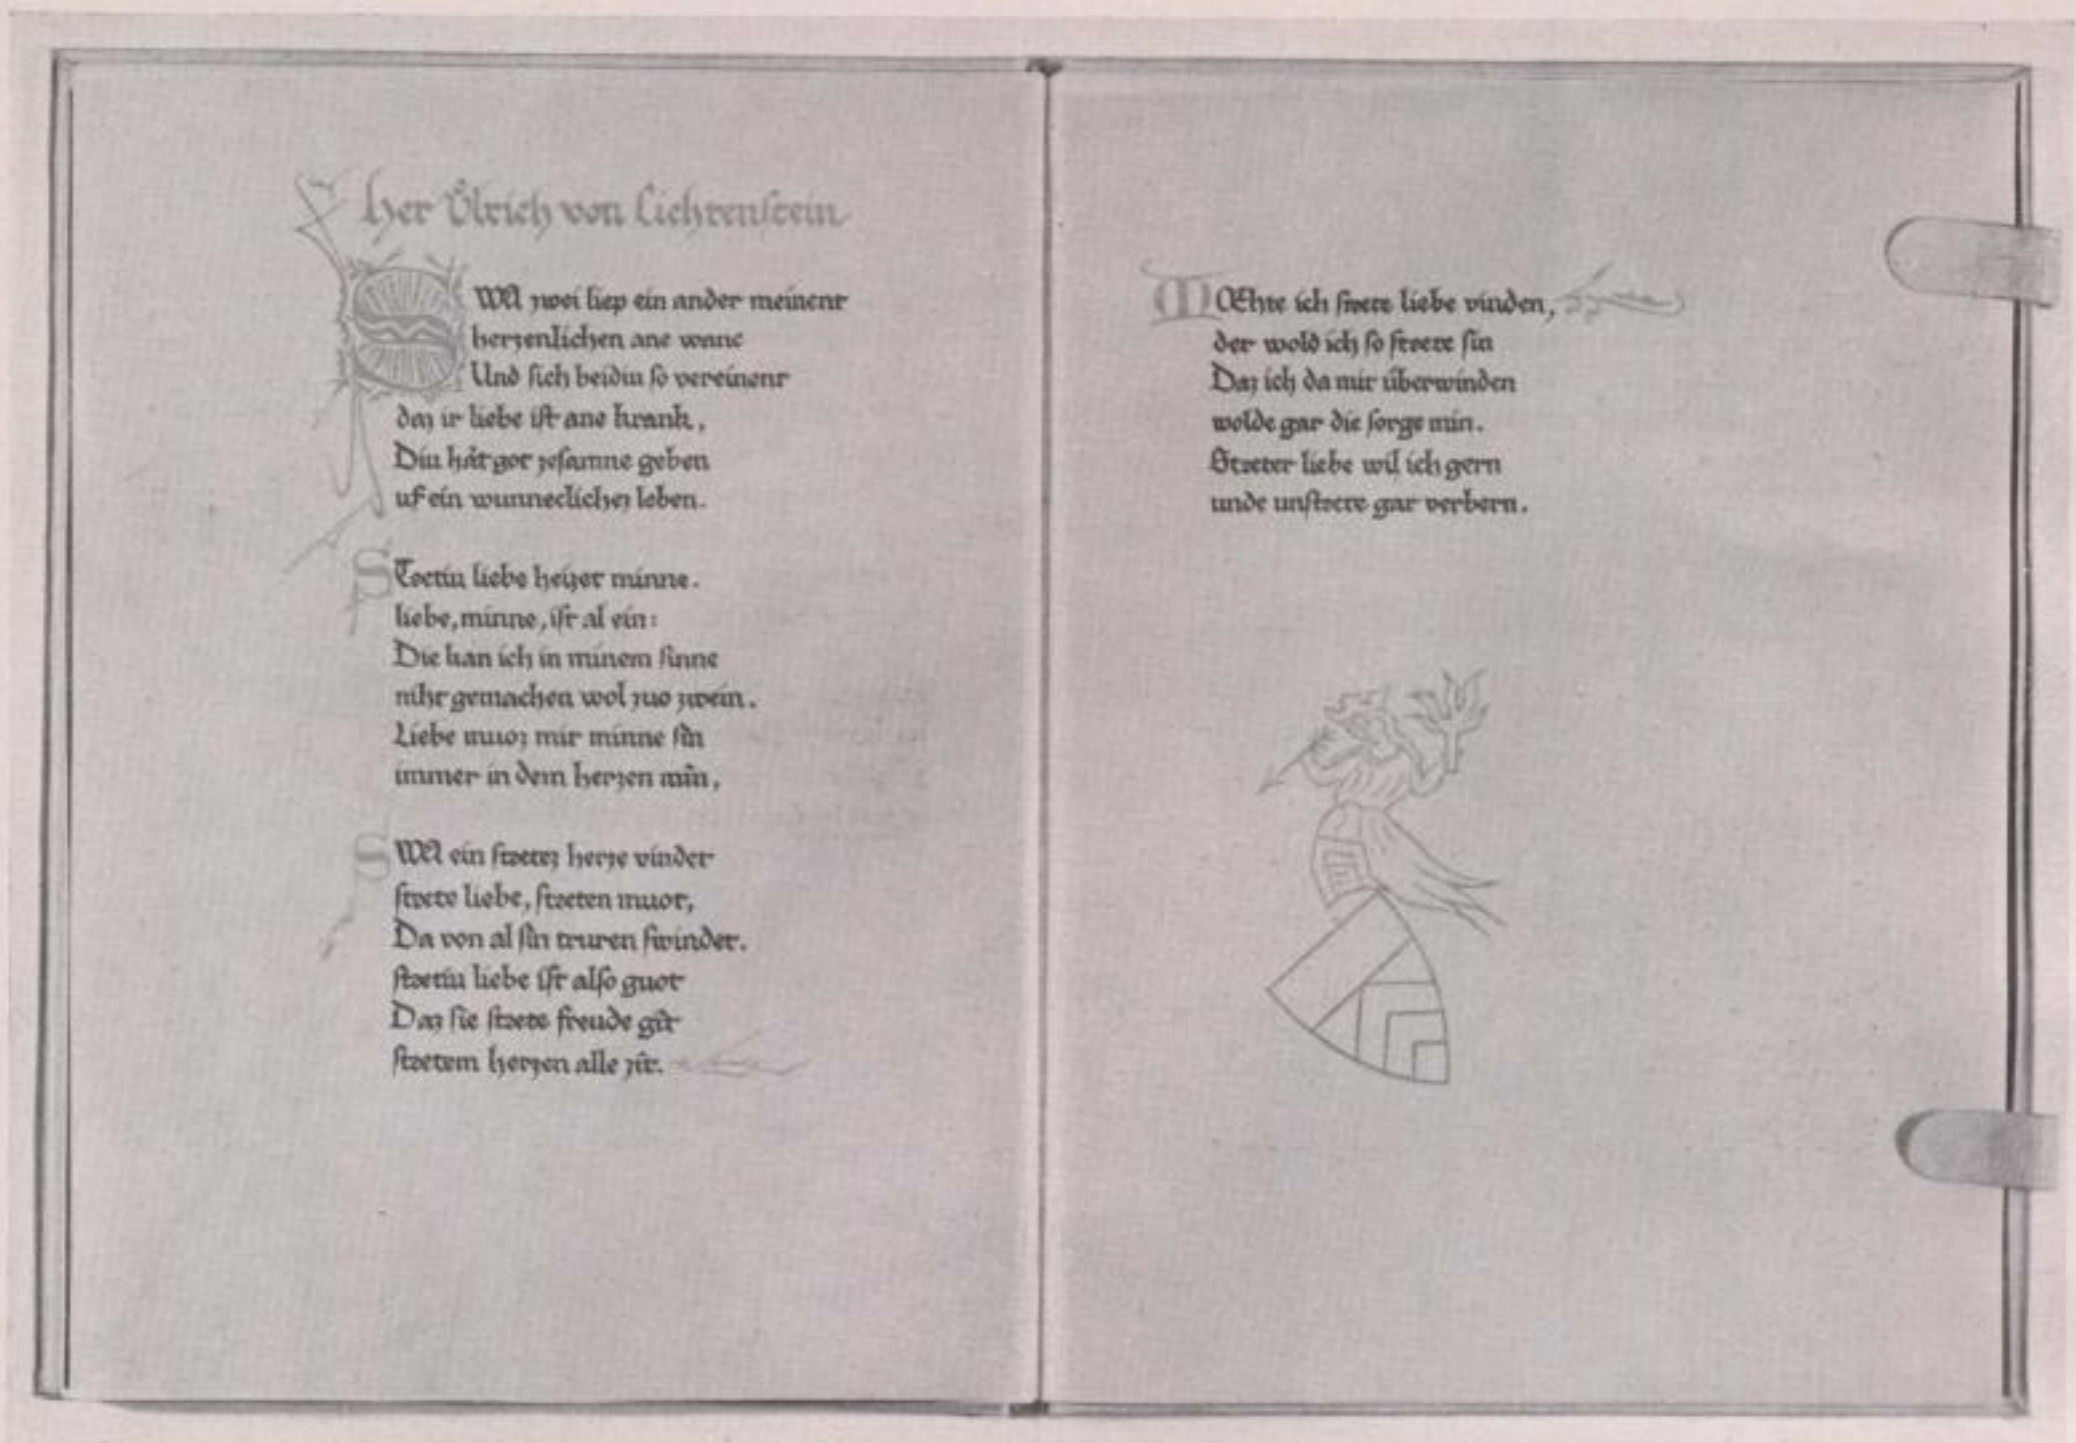 Her Ůlrich von Liechtenstein
SWA zwei liep ein ander meinent
herzenlichen ane wanc
Und sich beidiu so vereinent
daz ir liebe ist ane krank,
Diu hât got zesamne geben
uf ein wunneclichez leben.
STaetiu liebe heizet minne.
liebe, minne, ist al ein:
Die kan ich in minem sinne
niht gemachen wol zuo zwein.
Liebe muoz mir minne sîn
immer in dem herzen mîn,
SWA ein staetez herze vindet
staete liebe, staeten muot,
Da von al sîn truren swindet.
staetiu liebe ist also guot
Daz sie staete freude gît
staetem herzen alle zît.
MOEhte ich staete liebe vinden,
der wold ich so staete sin
Daz ich da mit überwinden
wolde gar die sorge min.
Staeter liebe wil ich gern
unde unstaete gar verbern.